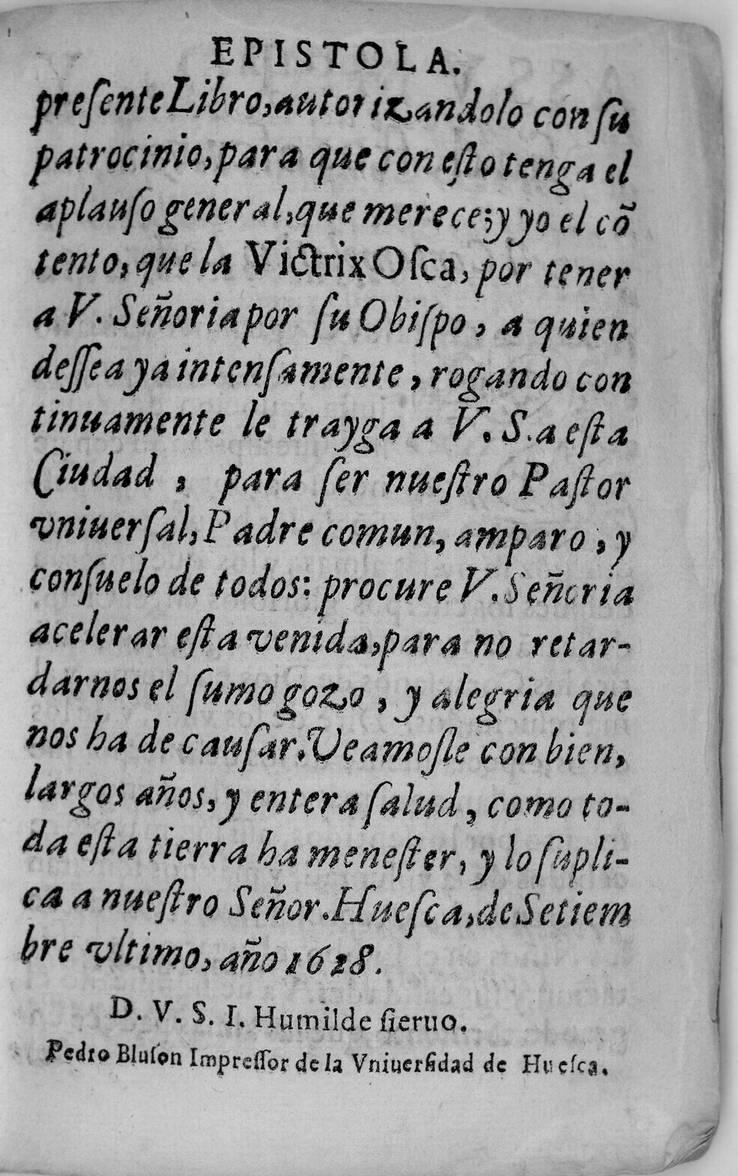 EPISTOLA.
preſente Libro, autorizandolo con ſu
patrocinio, para que con eſto tenga el
aplauſo general, que merece; y yo el cõ
tento, que la Victrix Oſca, por tener
a V. Señoria por ſu Obiſpo, a quien
deſſea ya intenſamente, rogando con
tinuamente le trayga a V. S. a eſta
Ciudad, para ſer nueſtro Paſtor
vniuerſal, Padre comun, amparo, y
conſuelo de todos: procure V. Señoria
acelerar eſta venida, para no retar-
darnos el ſumo gozo, y alegria que
nos ha de cauſar. Veamoſle con bien,
largos años, y entera ſalud, como to-
da eſta tierra ha meneſter, y lo ſupli-
ca a nueſtro Señor. Hueſca, de Setiem
bre vltimo, año 1628.
D. V. S. I. Humilde ſieruo.
Pedro Bluſon Impreſſor de la Vniuerſidad de Hueſca.